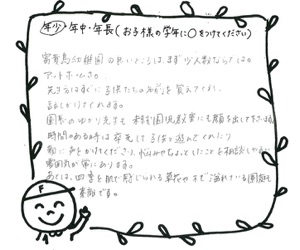 年少・年中・年長(お子様の学年に○をつけてください)
幼稚園の良いところは、まず少人数ならではの
アットホームさ。
先生方はすぐに子供たちの名前を覚えてくれ、
声をかけてくれます。
園長のゆかり先生も未就園児教室にも顔を出して下さる
時間のある時は率先して子供と遊んでくれたり
親に声をかけてくださり、悩みやちょっとしたことを相談しやすい
雰囲気が常にあります。
あとは、四季を肌で感じられる草花や木で溢れている園庭も
素敵です。
F